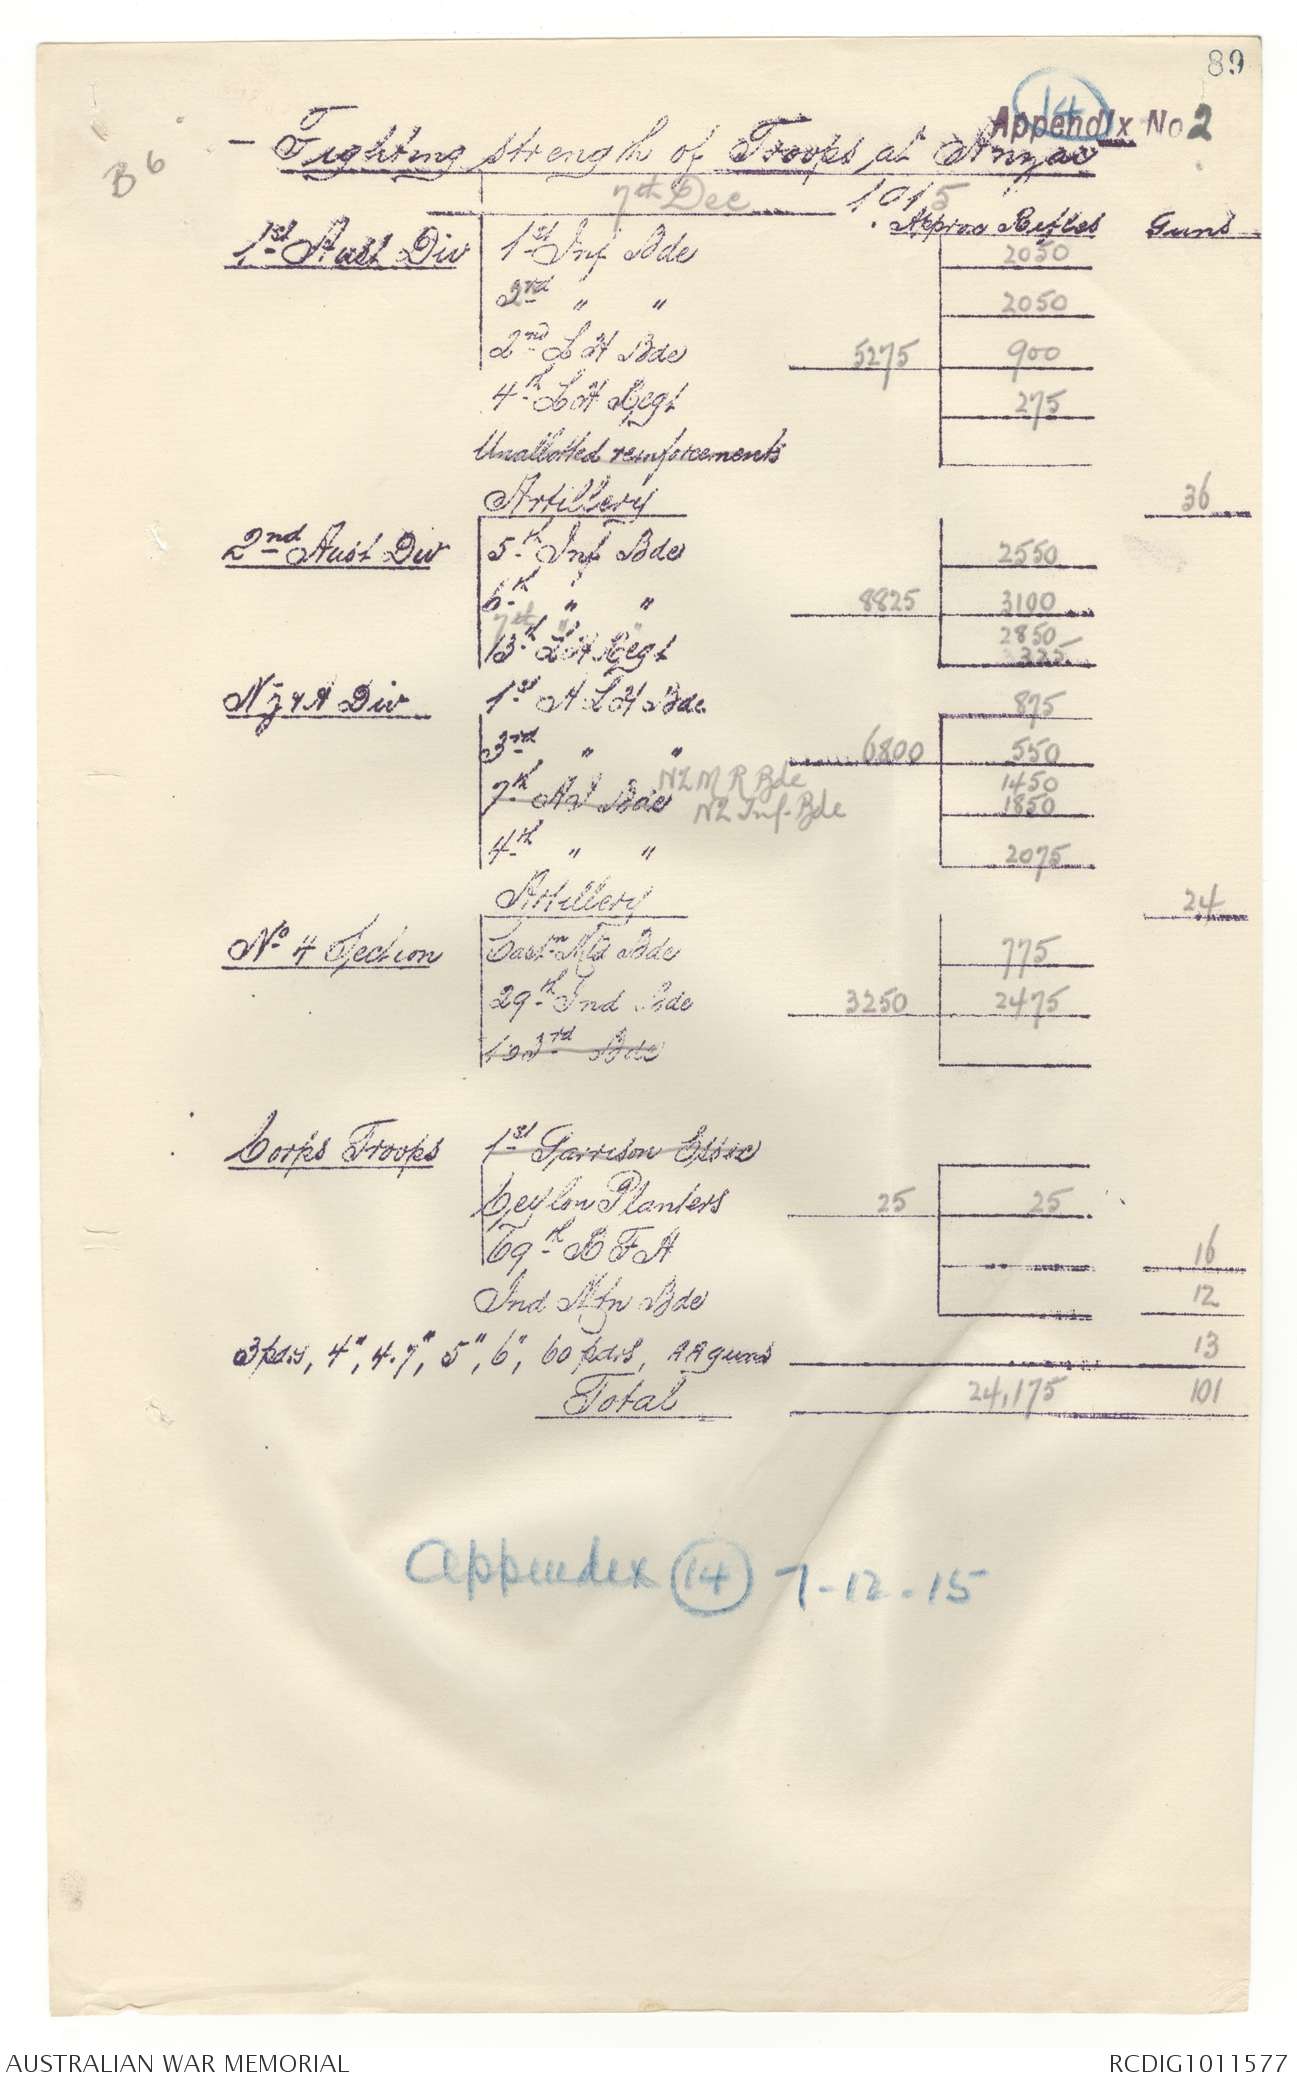 89
14
Appendix No 2
B6
- Fighting strength of Troops at Anzac
7th Dec 1915
Approx Rifles Guns
1st Aust Div 1st Inf Bde 2050
2nd " " 2050
2nd L H Bde 5275 900
4th L H Regt 275
Unallotted reinforcements
Artillery 36
2nd Aust Div 5th Inf Bde 2550
6th " " 8825 3100
7th " " 2850
13th L H Regt 325
N Z & A Div 1st A L H Bde 875
3rd " " 6800 550
N Z M R Bde 1450
7th Inf Bde N Z Inf. Bde 1850
4th " " 2075
Artillery 24
No 4 Section East Mtd Bde 775
29th Ind Bde 3250 2475
103rd Bde
Corps Troops 1st Garrison Essex
Ceylon Planters 25 25
69th B F A 16
Ind Mtn Bde 12
3pdrs, 4", 4.7", 5", 6", 60 pdrs, A A guns 13
Total 24,175 101
Appendex 14 7-12-15
AUSTRALIAN WAR MEMORIAL RCDIG1011577